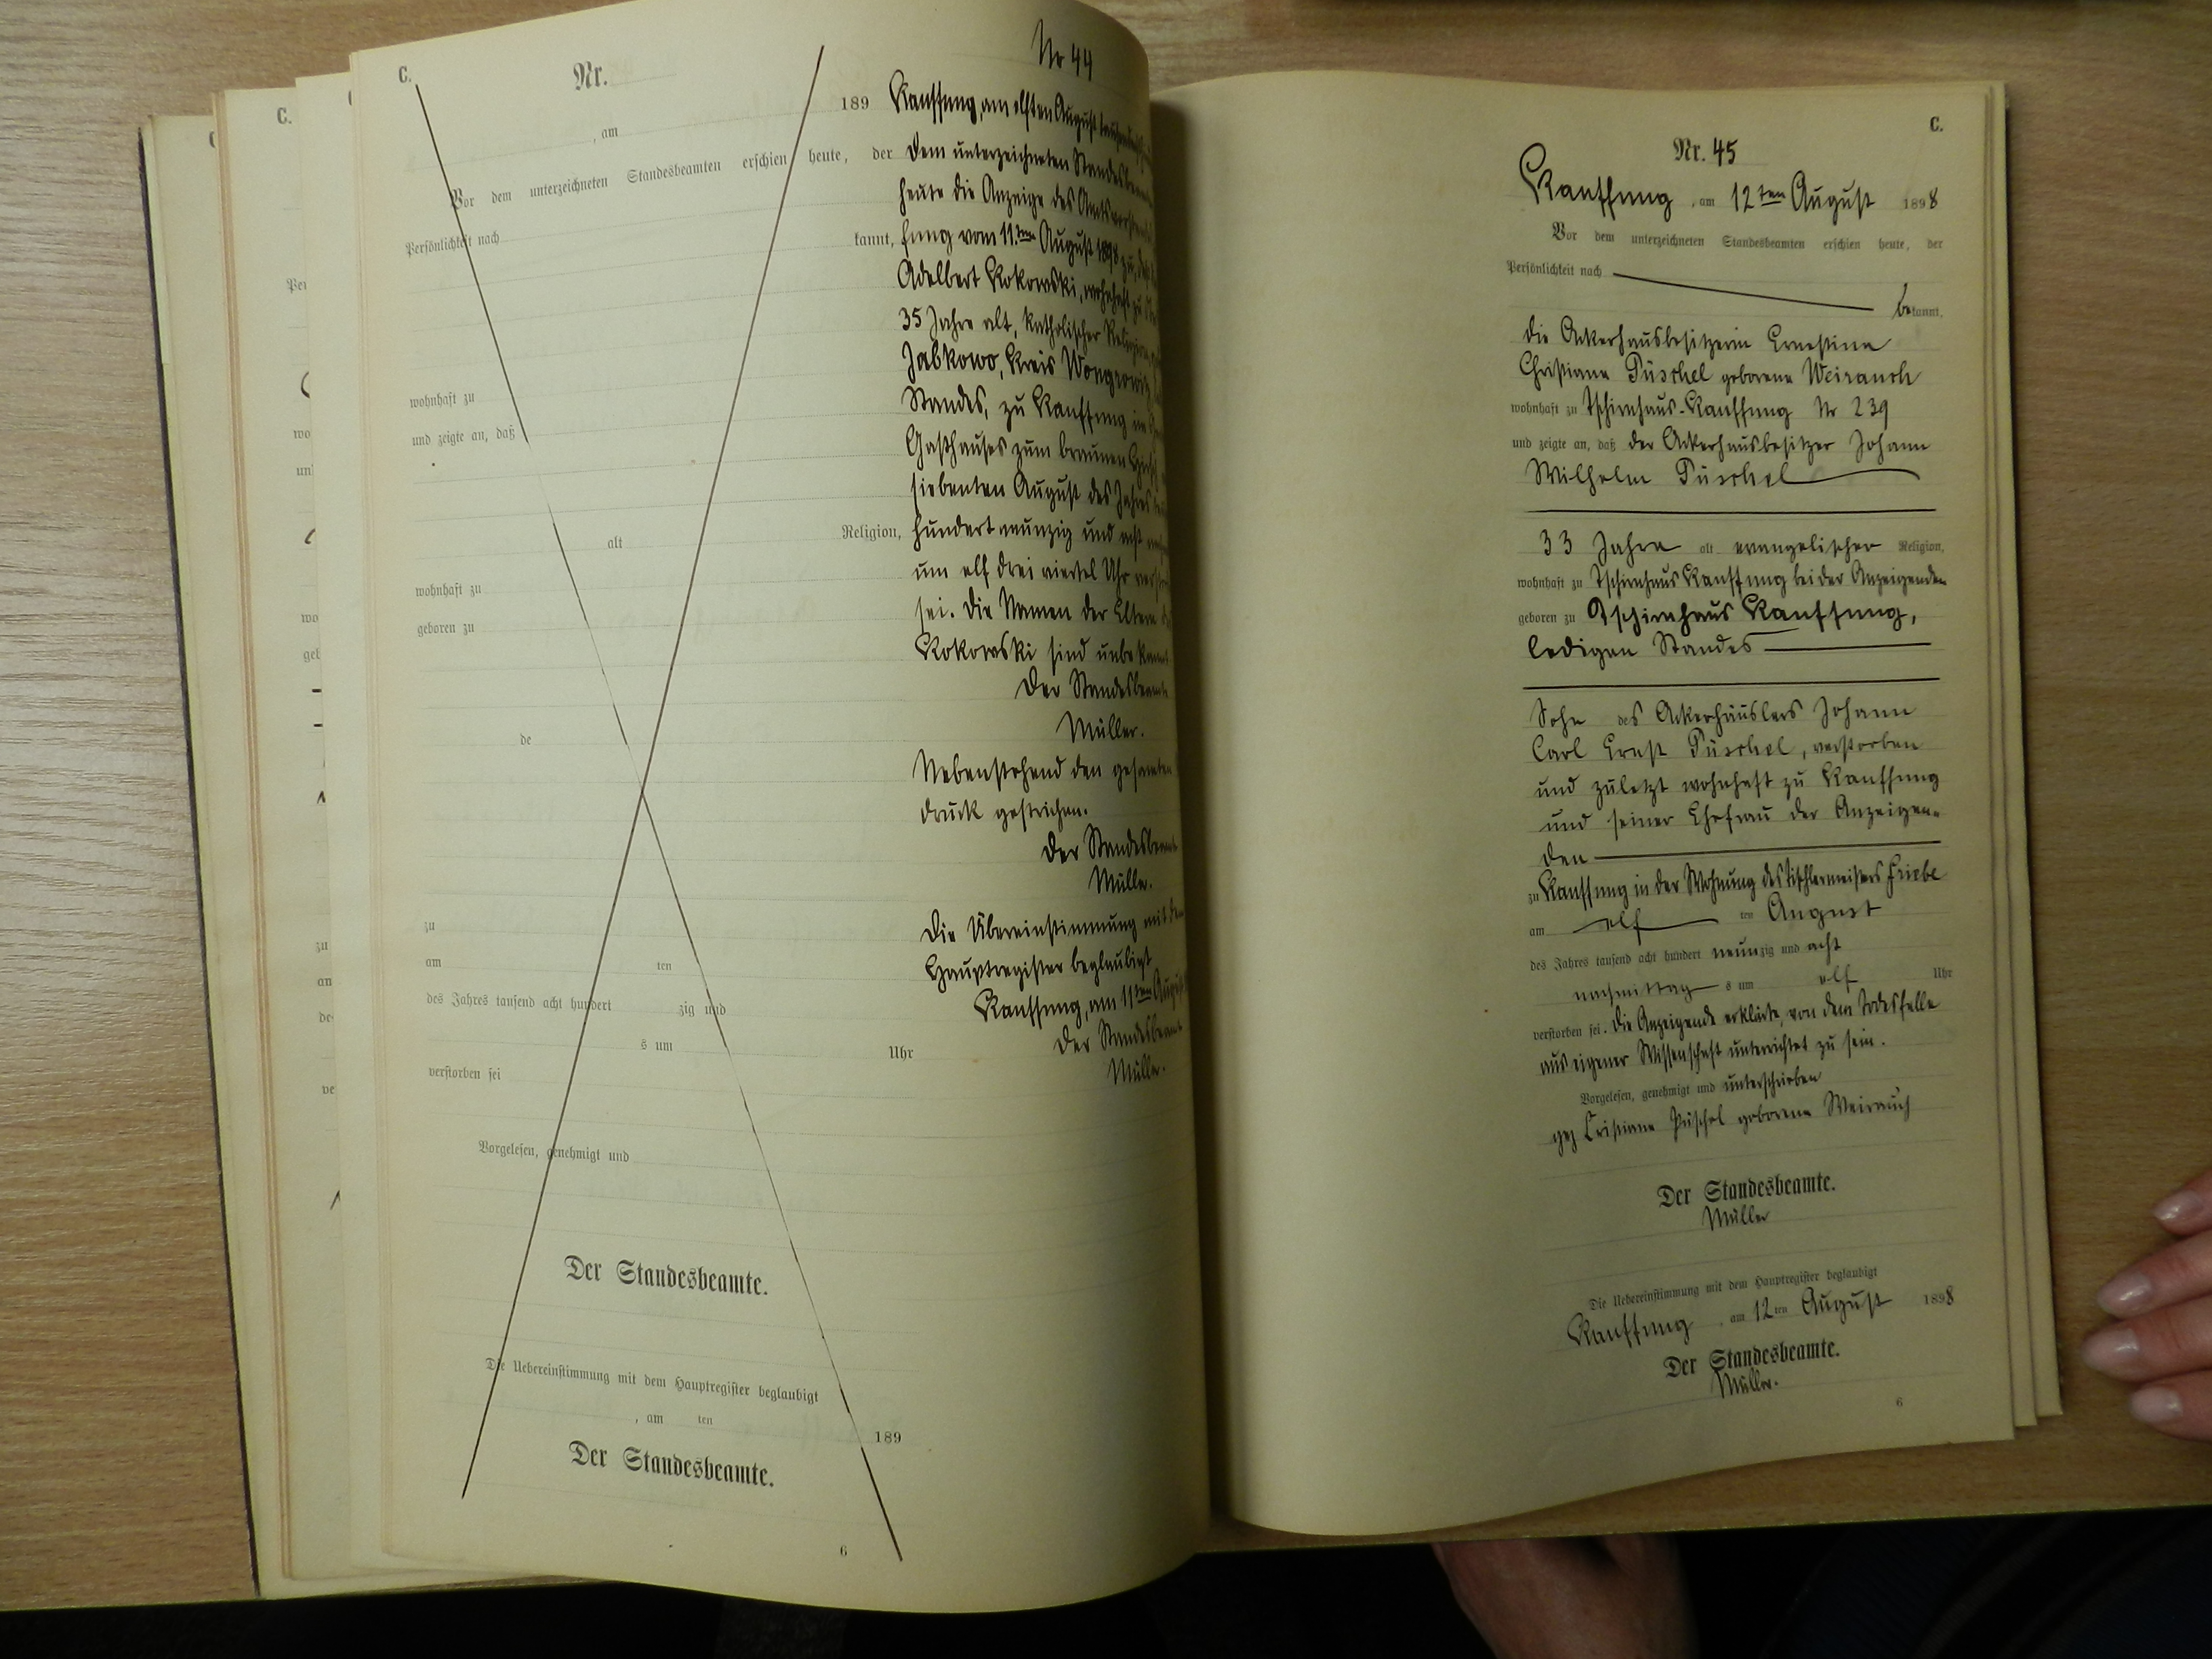 C.
Nr.
, am 189
Vor dem unterzeichneten Standesbeamten erschien heute, der
Persönlichkeit nach
kannt,
wohnhaft zu
und zeigte an, daß
alt Religion,
wohnhaft zu
geboren zu
de
zu
am ten
des Jahres tausend acht hundert zig und
s um Uhr
verstorben sei
Vorgelesen, genehmigt und
Der Standesbeamte.
Die Uebereinstimmung mit dem Hauptregister beglaubigt
, am ten 189
Der Standesbeamte.
6
Nr 44
Kauffung, am elften August
Dem unterzeichneten
heute die Anzeige des
fung vom 11.ten August 1898 zu,
Adelbert Kokowski, wohnhaft zu
35 Jahre alt, katholischer Religion,
Jabkowo, Kreis Wongrowitz
Standes, zu Kauffung im
Gasthauses zum braunen Hirsch
siebenten August des Jahres
hundert neunzig und acht
um elf drei viertel Uhr
sei. Die Namen der Eltern
Kokowski sind unbekannt
Der Standesbeamte
Müller.
Nebenstehend den gesamten
druck gestrichen.
Der Standesbeamte
Müller.
Die Übereinstimmung mit dem
Hauptregister beglaubigt
Kauffung, am 11ten August
Der Standesbeamte
Müller.
C.
Nr. 45
Kauffung, am 12ten August 1898
Vor dem unterzeichneten Standesbeamten erschien heute, der
Persönlichkeit nach
bekannt,
die Ackerhausbesitzerin Ernestine
Christiane Püschel geborene Weirauch
wohnhaft zu Tschirnhaus-Kauffung Nr 239
und zeigte an, daß der Ackerhausbesitzer Johann
Wilhelm Püschel
33 Jahre alt evangelischer Religion,
wohnhaft zu Tschirnhaus Kauffung bei der Anzeigenden
geboren zu Tschirnhaus Kauffung,
ledigen Standes
Sohn des Ackerhäuslers Johann
Carl Ernst Püschel, verstorben
und zuletzt wohnhaft zu Kauffung
und seiner Ehefrau der Anzeigen-
den
zu Kauffung in der Wohnung des Tischlermeisters Friebe
am elf ten August
des Jahres tausend acht hundert neunzig und acht
nachmittag s um elf Uhr
verstorben sei. Die Anzeigende erklärte, von dem Todesfalle
aus eigener Wissenschaft unterrichtet zu sein.
Vorgelesen, genehmigt und unterschrieben
gez Cristiane Püschel geborene Weirauch
Der Standesbeamte.
Müller
Die Uebereinstimmung mit dem Hauptregister beglaubigt
Kauffung, am 12ten August 1898
Der Standesbeamte.
Müller.
6